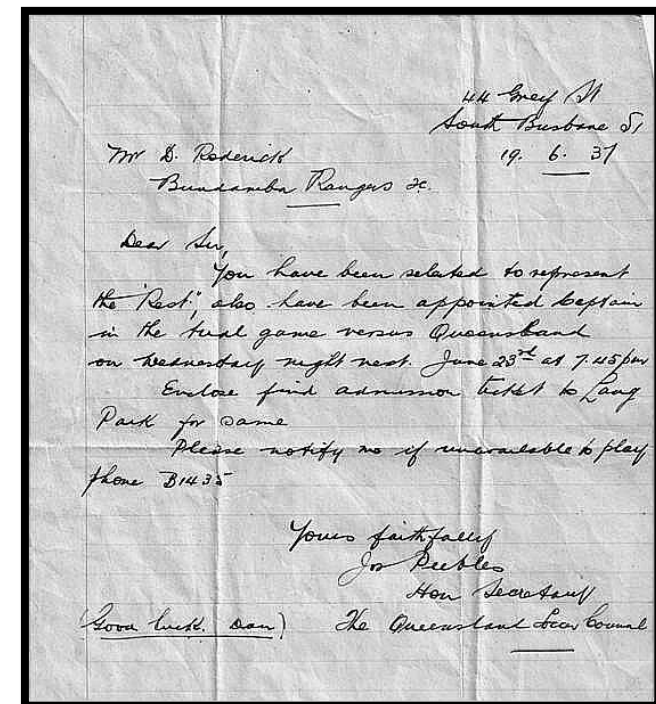 44 Grey St
South Brisbane S1
19. 6. 37
Mr D. Roderick
Bundamba Rangers
Dear Sir,
You have been selected to represent
the "Rest", also have been appointed Captain
in the trial game versus Queensland
on Wednesday night next. June 23rd at 7.45pm
Enclose find admission ticket to Lang
Park for same
Please notify me if unavailable to play
phone B1435
Yours faithfully
Jos Peebles
Hon Secretary
(Good luck. Dan) The Queensland Soccer Council